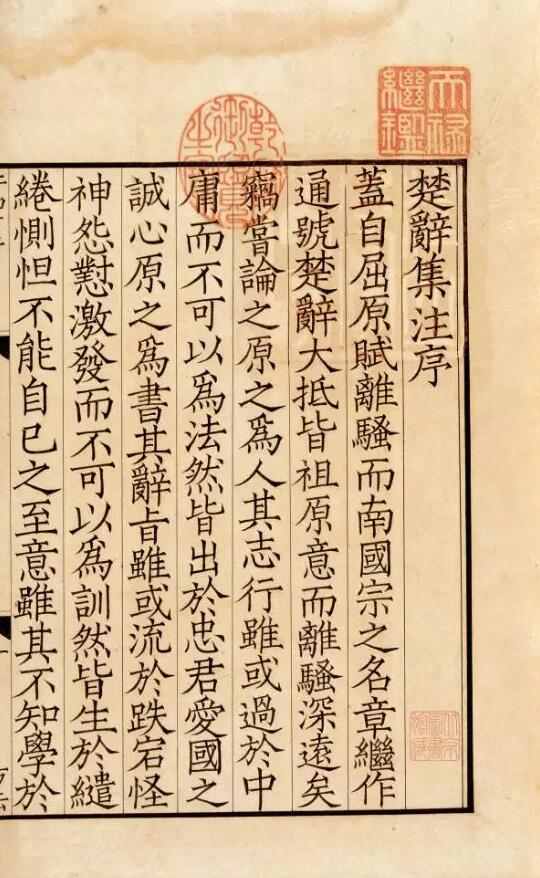 楚辭集注序
蓋自屈原賦離騷而南國宗之名章繼作
通號楚辭大抵皆祖原意而離騷深遠矣
竊嘗論之原之爲人其志行雖或過於中
庸而不可以爲法然皆出於忠君愛國之
誠心原之爲書其辭旨雖或流於跌宕怪
神怨懟激發而不可以爲訓然皆生於繾
綣惻怛不能自已之至意雖其不知學於
天祿繼鑑